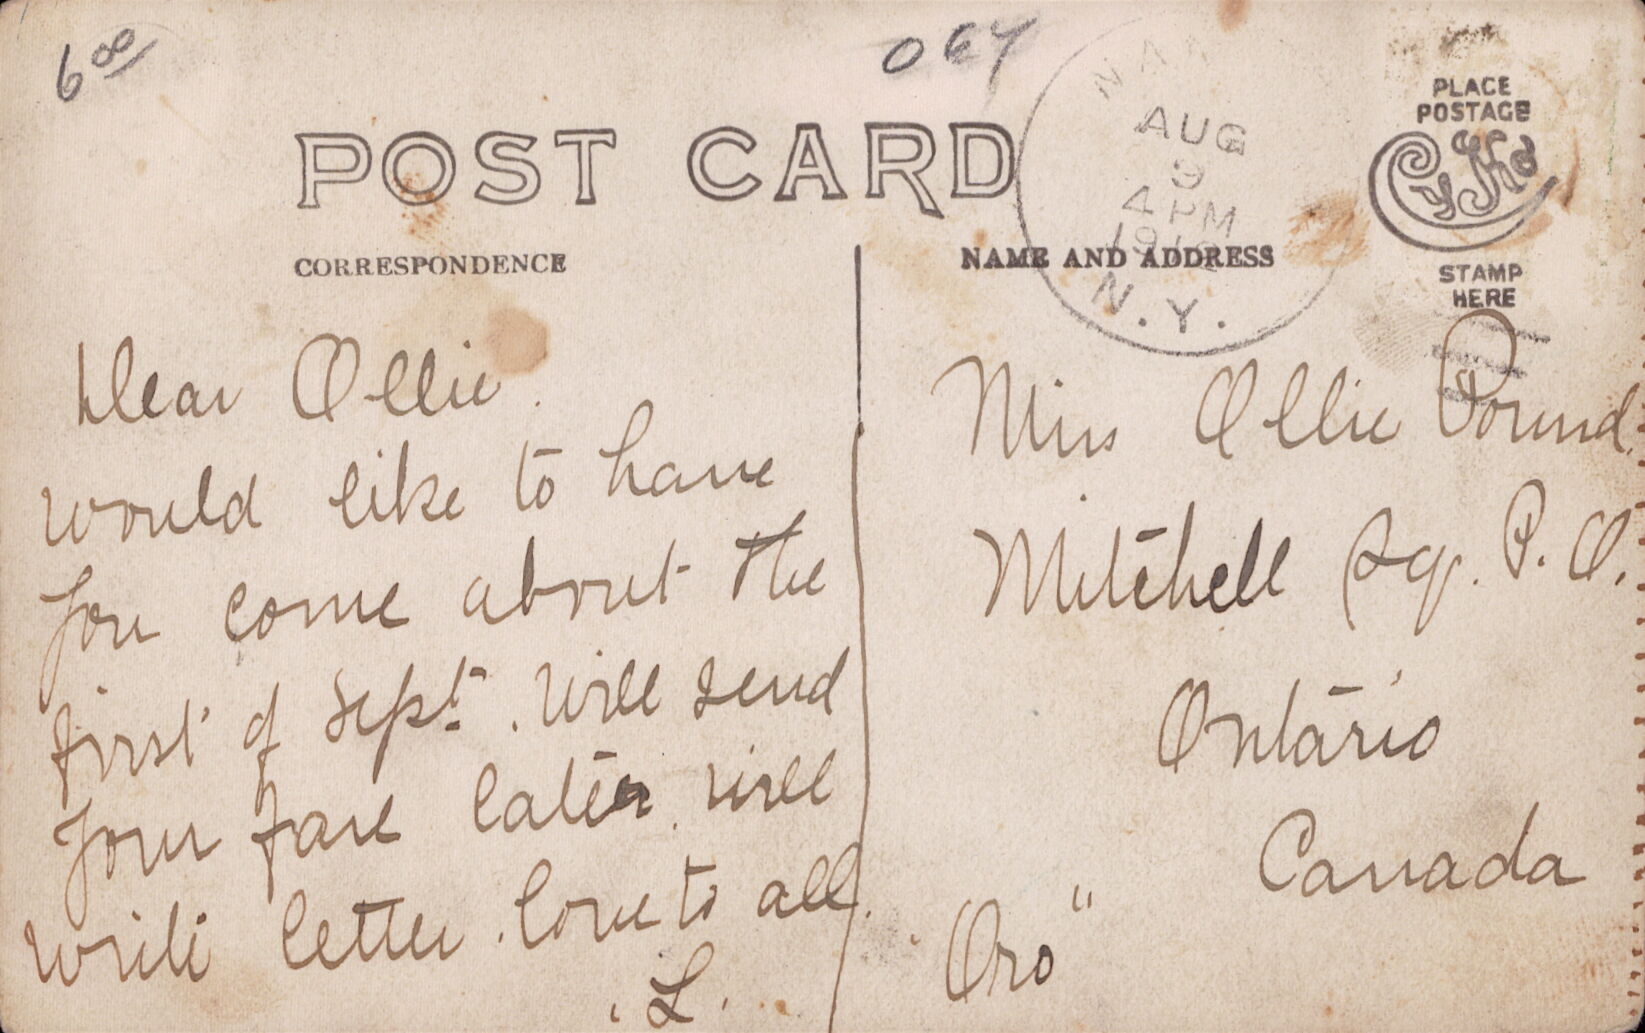 6 00
POST CARD
AUG
9
4 PM
N.Y.
PLACE
POSTAGE
CYKO
STAMP
HERE
CORRESPONDENCE
NAME AND ADDRESS
Dear Ollie.
would like to have
you come about the
first of Sept. Will send
your fare later. will
write letter. love to all.
.L.
Miss Ollie Pound
Mitchell Sq. P. O.
Ontario
Canada
"Oro"